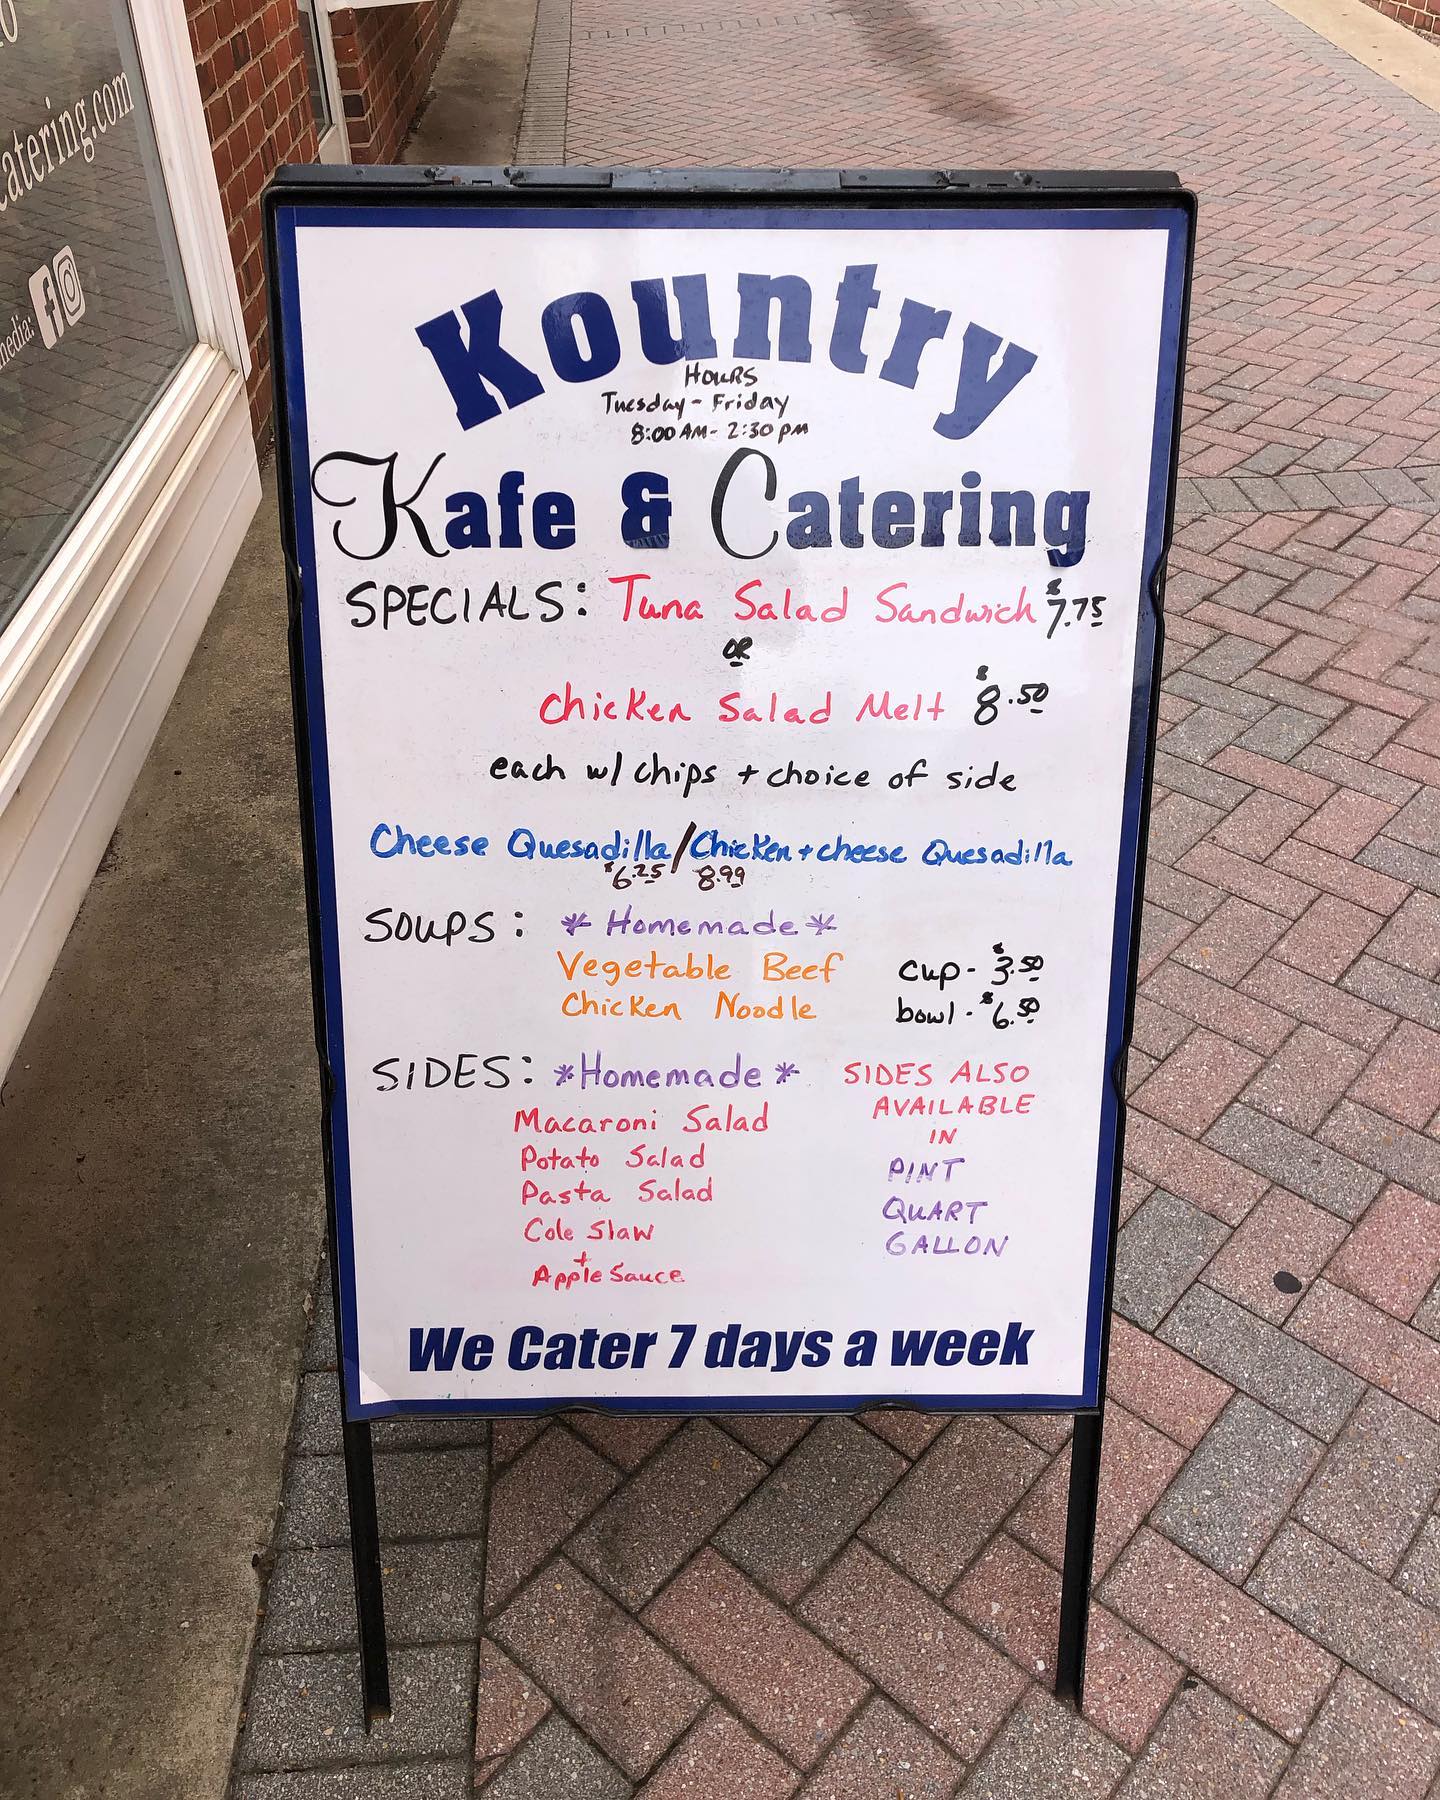 catering.com
media:
Kountry
HOURS
Tuesday - Friday
8:00 AM - 2:30 PM
Kafe & Catering
SPECIALS: Tuna Salad Sandwich $7.75
OR
Chicken Salad Melt $8.50
each w/ chips + choice of side
Cheese Quesadilla / Chicken + cheese Quesadilla
$6.25 8.99
SOUPS: * Homemade *
Vegetable Beef cup - $3.50
Chicken Noodle bowl - $6.50
SIDES: * Homemade *
Macaroni Salad
Potato Salad
Pasta Salad
Cole Slaw
+
Apple Sauce
SIDES ALSO
AVAILABLE
IN
PINT
QUART
GALLON
We Cater 7 days a week